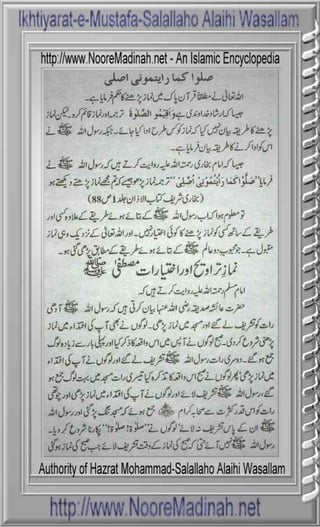 Ikhtiyarat-e-Mustafa-Salallaho Alaihi Wasallam
http://www.NooreMadinah.net - An Islamic Encyclopedia
صلوا كما رايتمونى اصلى
اللہ تعالیٰ نے مطلقاً قرآن پاک میں نماز پڑھنے کا حکم فرمایا ہے۔
جیسا کہ ارشاد خداوندی ہے وَاَقِيْمُو الصَّلٰوةَ ترجمہ اور نماز قائم کرو۔ لیکن نماز
پڑھنے کا طریقہ بیان نہیں کیا کہ نماز کو کس طرح ادا کیا جائے۔ جبکہ رسول اللہ ﷺ نے
اس کو ادا کرنے کا طریقہ بیان فرمایا ہے۔
جیسا کہ امام بخاری رحمتہ اللہ علیہ روایت کرتے ہیں کہ رسول اللہ ﷺ نے
فرمایا "صَلُّوْا كَمَا رَاَيْتُمُوْنِىْ اُصَلِّىْ" ترجمہ نماز پڑھو جیسے کہ تم مجھے نماز پڑھتے دیکھتے ہو
(بخاری شریف کتاب الاذان جلد 1 ص 88)
تو معلوم ہوا کہ اب رسول اللہ ﷺ کے بتائے ہوئے طریقے کے علاوہ کسی اور
طریقے کے ساتھ کسی کو نماز پڑھنے کا کوئی اختیار نہیں۔ اور اللہ تعالیٰ کے نزدیک وہی نماز
مقبول ہے۔ جو محبوب دو عالم ﷺ کے بتائے ہوئے طریقے کے مطابق پڑھی گئی ہو۔
نماز تراویح اور اختیارات مصطفیٰ ﷺ
امام مسلم رحمتہ اللہ علیہ روایت کرتے ہیں کہ
حضرت عائشہ صدیقہ رضی اللہ عنہا بیان کرتی ہیں کہ رسول اللہ ﷺ آدھی
رات کو تشریف لے گئے اور مسجد میں نماز پڑھی۔ لوگوں نے بھی آپ کی اقتداء میں نماز
پڑھنی شروع کردی۔ صبح لوگوں نے آپس میں اس واقعہ کا ذکر کیا اور پہلی بار سے زیادہ لوگ
جمع ہوگئے۔ دوسری رات رسول اللہ ﷺ تشریف لے گئے اور لوگوں نے آپ کی اقتداء
میں نماز پڑھی پھر لوگوں نے صبح اس واقعہ کا تذکرہ کیا تیسری رات مسجد میں بہت لوگ جمع ہو
گئے، رسول اللہ ﷺ تشریف لائے اور لوگوں نے آپ کی اقتداء میں نماز پڑھی اور چوتھی
رات کو اس قدر کثرت سے صحابہ کرام جمع ہوئے کہ مسجد تنگ پڑ گئی اور رسول اللہ
ﷺ ان کے پاس تشریف نہ لائے لوگوں نے "صلوٰۃ! صلوٰۃ!" پکارنا شروع کردیا۔
رسول اللہ ﷺ نہیں آئے حتیٰ کہ صبح کی نماز کے وقت تشریف لائے جب صبح کی نماز ہوگئی
Authority of Hazrat Mohammad-Salallaho Alaihi Wasallam
http://www.NooreMadinah.net